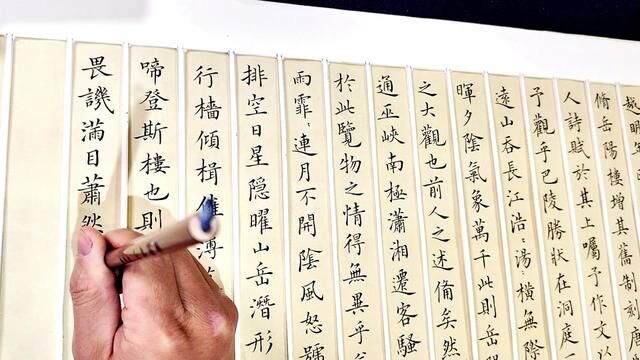 越明年
脩岳陽樓增其舊制刻唐
人詩賦於其上囑予作文以
予觀乎巴陵勝狀在洞庭
遠山吞長江浩〻湯〻橫無際
暉夕陰氣象萬千此則岳
之大觀也前人之述備矣然
通巫峽南極瀟湘遷客騷
於此覽物之情得無異乎
雨霏〻連月不開陰風怒號
排空日星隱曜山岳潛形
行檣傾楫摧薄
啼登斯樓也則
畏譏滿目蕭然